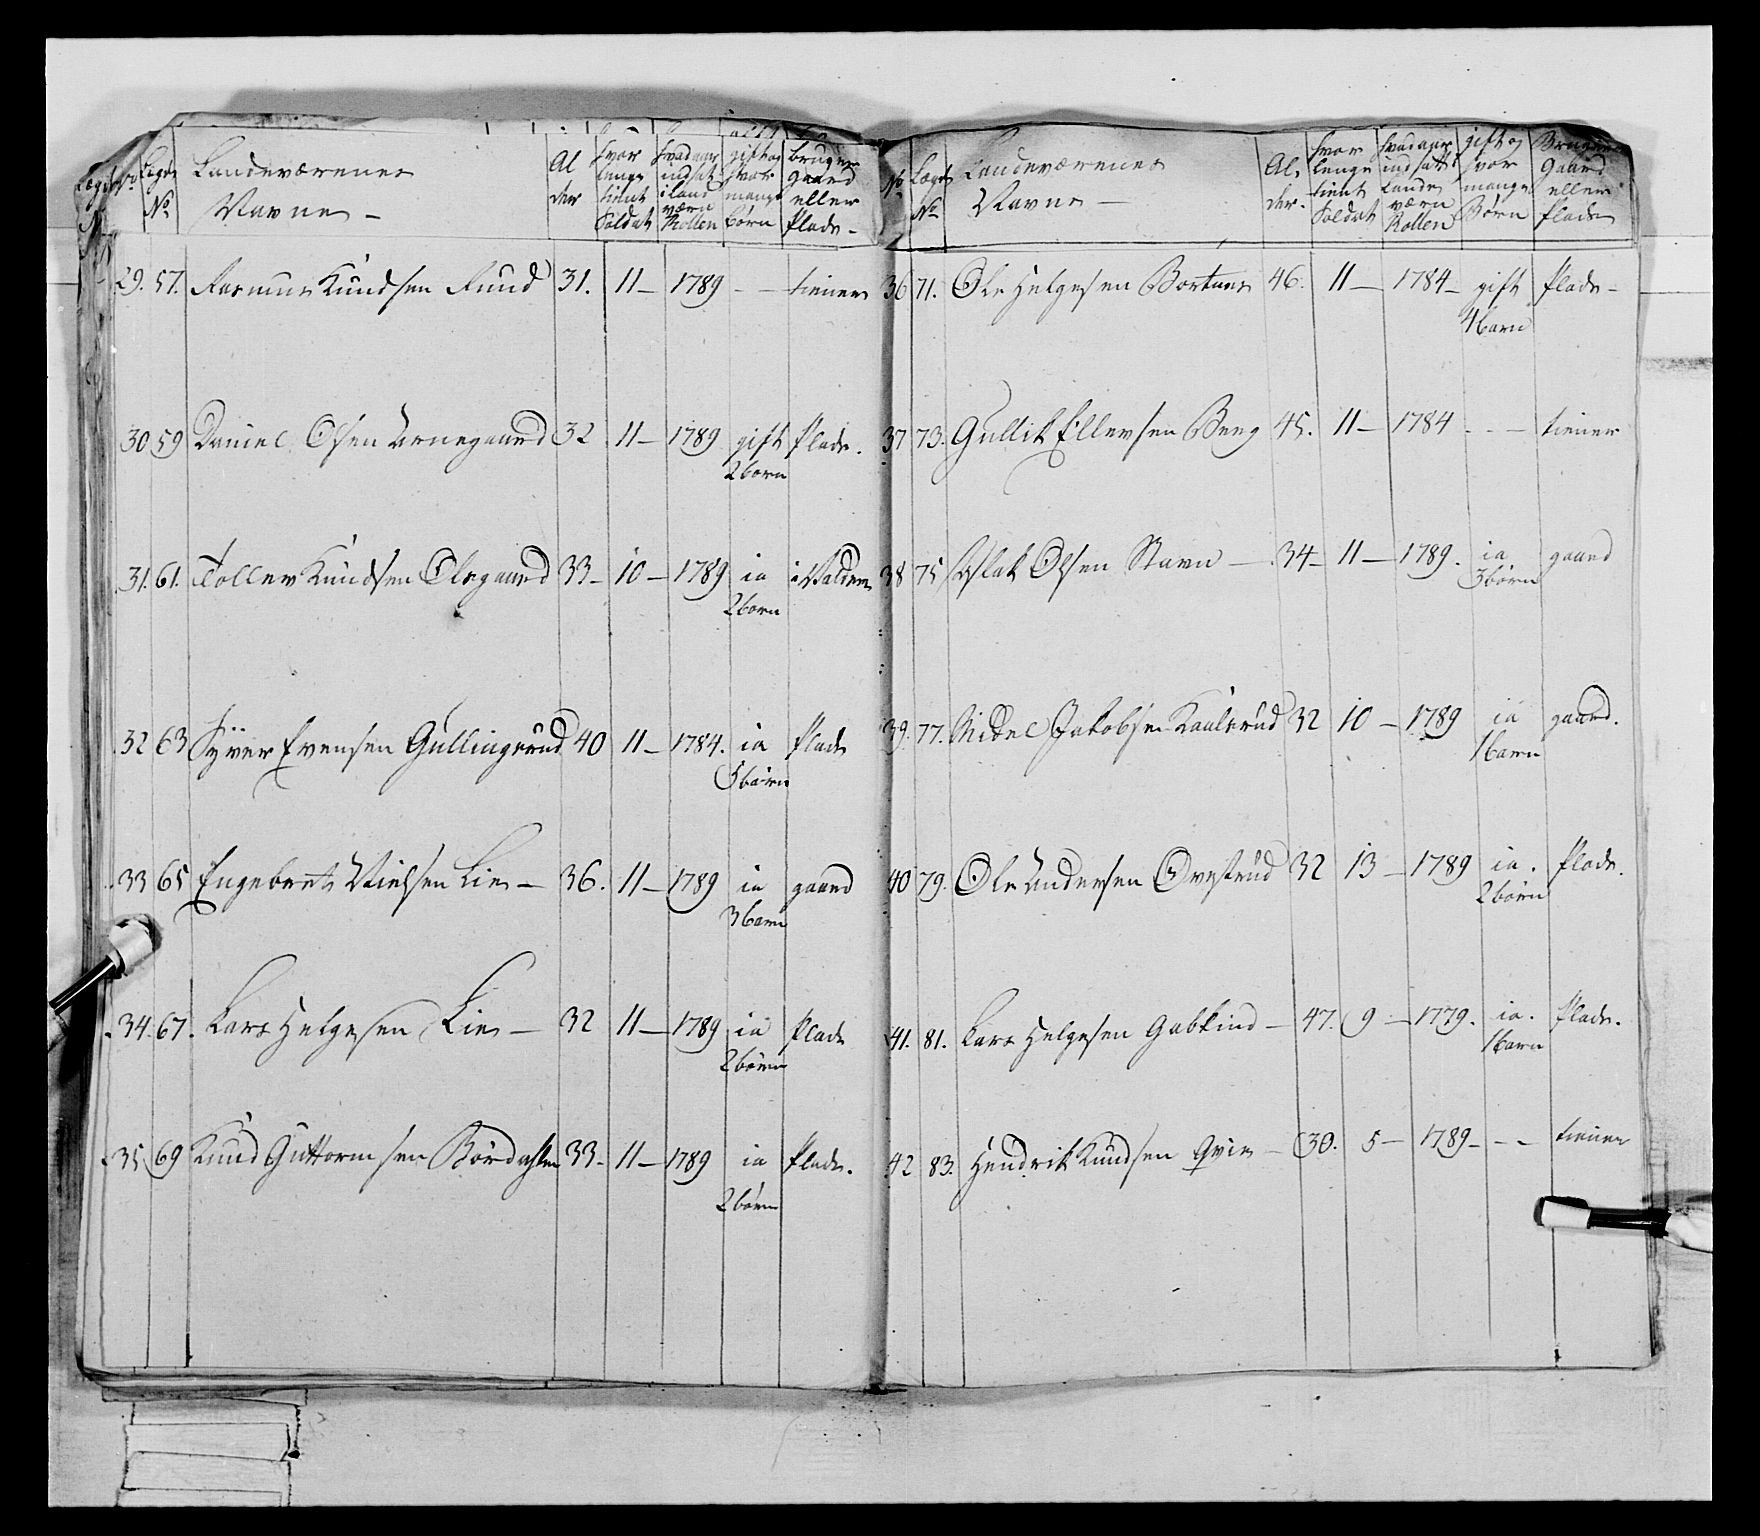 No Legds No Landeværenes Navne - Al der hvor lenge tient Soldat hvad aar indsat i Land værn Rollen gift og hvor mange børn bruger gaard eller Plads -
29. 57. Rasmus Knudsen Ruud 31. 11 - 1789 - - tiener
30 59 Daniel Olsen Arnegaard 32 11 - 1789 gift Plads.
2 børn
31. 61. Tollev Knudsen Olsgaard 33 - 10 - 1789 ia
2 børn
32 63 Syver Evensen Gullingsrud 40 11 - 1784. ia Plads
5 børn
33 65 Engebret Nielsen Lie - 36. 11 - 1789 ia gaard
3 børn
34. 67. Lars Helgesen Lie - 32 11 - 1789 ia Plads
2 børn
35 69 Knud Guttormsen 33 - 11 - 1789 ia Plads.
2 børn
No Legds No Landeværenes Navne - Al der - hvor lenge tient Soldat hvad aar indsatt i Lande værn Rollen gift og hvor mange Børn Bruger Gaard eller Plads
36 71. Ole Helgesen Bortnes 46. 11 - 1784 - gift Plads -
4 børn
37 73. Gullik Ellevsen Berg 45. 11 - 1784 - - tiener
38 75 Aslak Olsen Stavn - 34 - 11 - 1789. ia gaard
3 børn
39. 77. Nidel Jakobsen Kaalsrud 32 10 - 1789 ia gaard.
1 barn
40 79. Ole Andersen Ovestrud 32 13 - 1789 ia. Plads.
2 børn
41. 81. Lars Helgesen Gabkind - 47. 9 - 1779. ia. Plads.
1 barn
42 83. Hendrik Knudsen Qvie - 30. 5 - 1789 - - - tiener